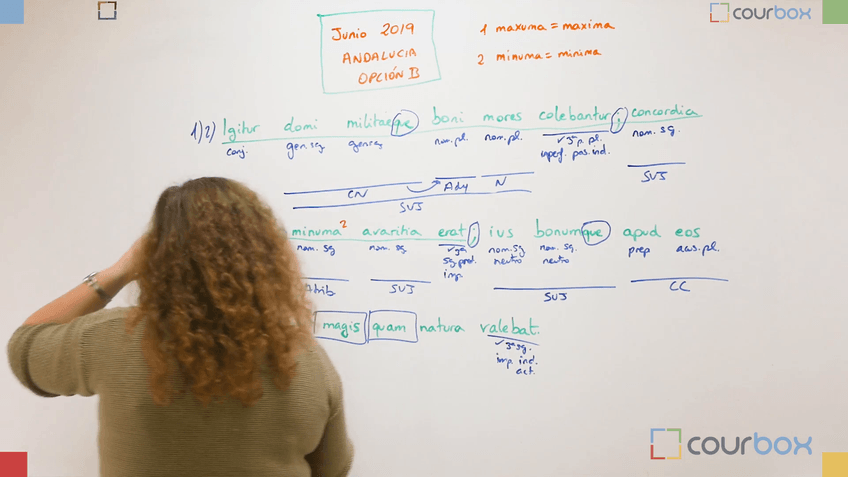 courbox
Junio 2019
ANDALUCIA
OPCIÓN B
1 maxuma = maxima
2 minuma = minima
1) 2) Igitur domi militaeque boni mores colebantur; concordica
conj. gen. sg gen. sg nom. pl. nom. pl. 3ª p. pl. nom. sg.
imperf. pas. ind.
CN Ady N SUJ
SUJ
minuma² avaritia erat; ius bonumque apud eos
nom. sg nom. sg nom. sg nom. sg. prep acus. pl.
neutro neutro
imp.
Atrib SUJ SUJ CC
magis quam natura valebat.
imp. ind.
act.
courbox